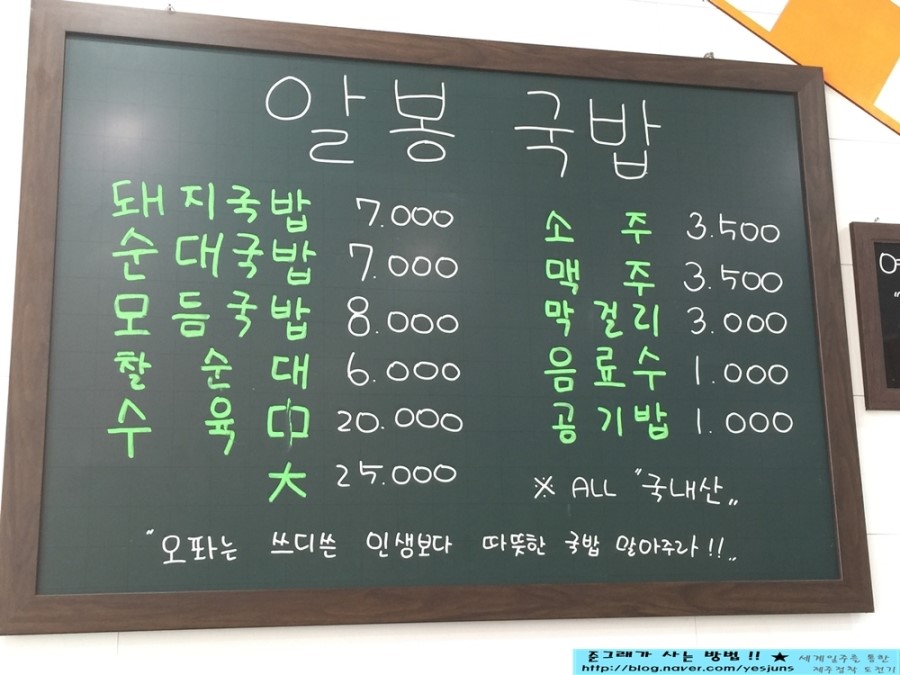 알봉 국밥
돼지국밥 7.000
순대국밥 7.000
모듬국밥 8.000
찰순대 6.000
수육 中 20.000
大 25.000
소주 3.500
맥주 3.500
막걸리 3.000
음료수 1.000
공기밥 1.000
※ ALL "국내산„
"오퐈는 쓰디쓴 인생보다 따뜻한 국밥 말아주라!!„
준그래가 사는 방법!! ★ 세계일주를 통한
http://blog.naver.com/yesjuns 제주정착 도전기